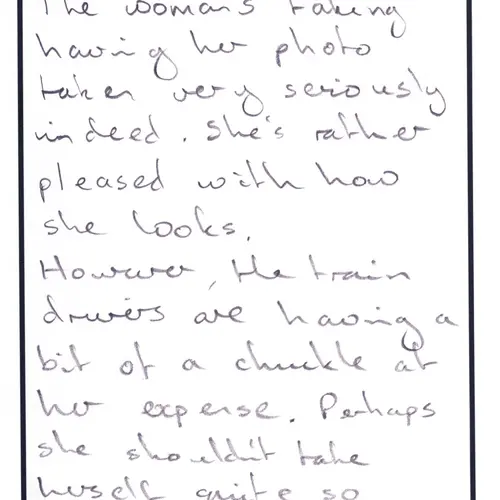 The woman's taking
having her photo
taken very seriously
indeed. She's rather
pleased with how
she looks.
However, the train
drivers are having a
bit of a chuckle at
her expense. Perhaps
she shouldn't take
herself quite so